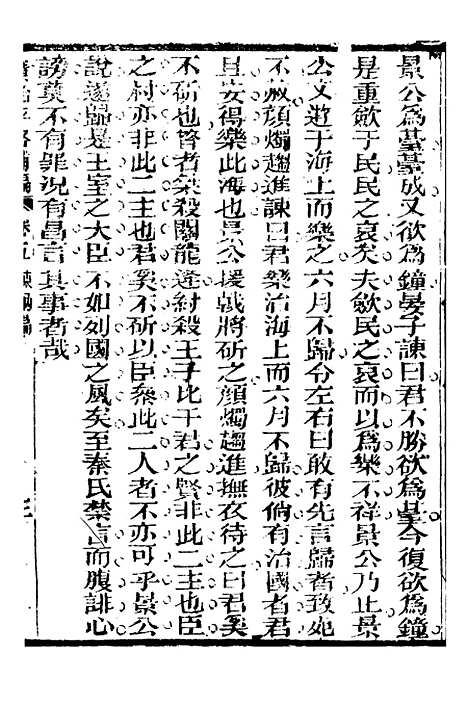 景公爲臺臺成又欲爲鐘晏子諫曰君不勝欲爲臺今復欲爲鐘
是重斂于民民之哀矣夫斂民之哀而以爲樂不祥景公乃止景
公文遊于海上而樂之六月不歸令左右曰敢有先言歸者致死
不赦顔燭趨進諫曰君樂治海上而六月不歸彼倘有治國者君
且安得樂此海也景公援戟將斫之顔燭趨進撫衣待之曰君奚
不斫也昔者桀殺關龍逄紂殺王子比干君之賢非此二主也臣
之材亦非此二主也君奚不斫以臣叅此二人者不亦可乎景公
說遂歸是王室之大臣不如列國之風矣至秦氏禁言而腹誹心
謗莫不有罪況有昌言其事者哉
卷五諫
三